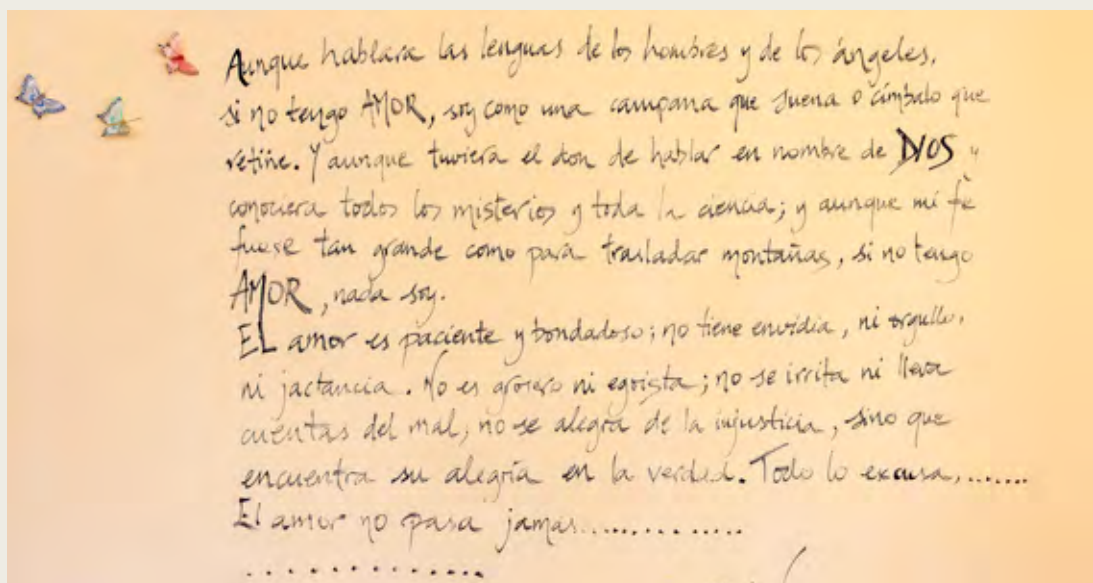 Aunque hablara las lenguas de los hombres y de los ángeles,
si no tengo AMOR, soy como una campana que suena o címbalo que
retiñe. Y aunque tuviera el don de hablar en nombre de DIOS y
conociera todos los misterios y toda la ciencia; y aunque mi fe
fuese tan grande como para trasladar montañas, si no tengo
AMOR, nada soy.
EL amor es paciente y bondadoso; no tiene envidia, ni orgullo,
ni jactancia. No es grosero ni egoísta; no se irrita ni lleva
cuentas del mal; no se alegra de la injusticia, sino que
encuentra su alegría en la verdad. Todo lo excusa,.......
El amor no pasa jamas..............
.............